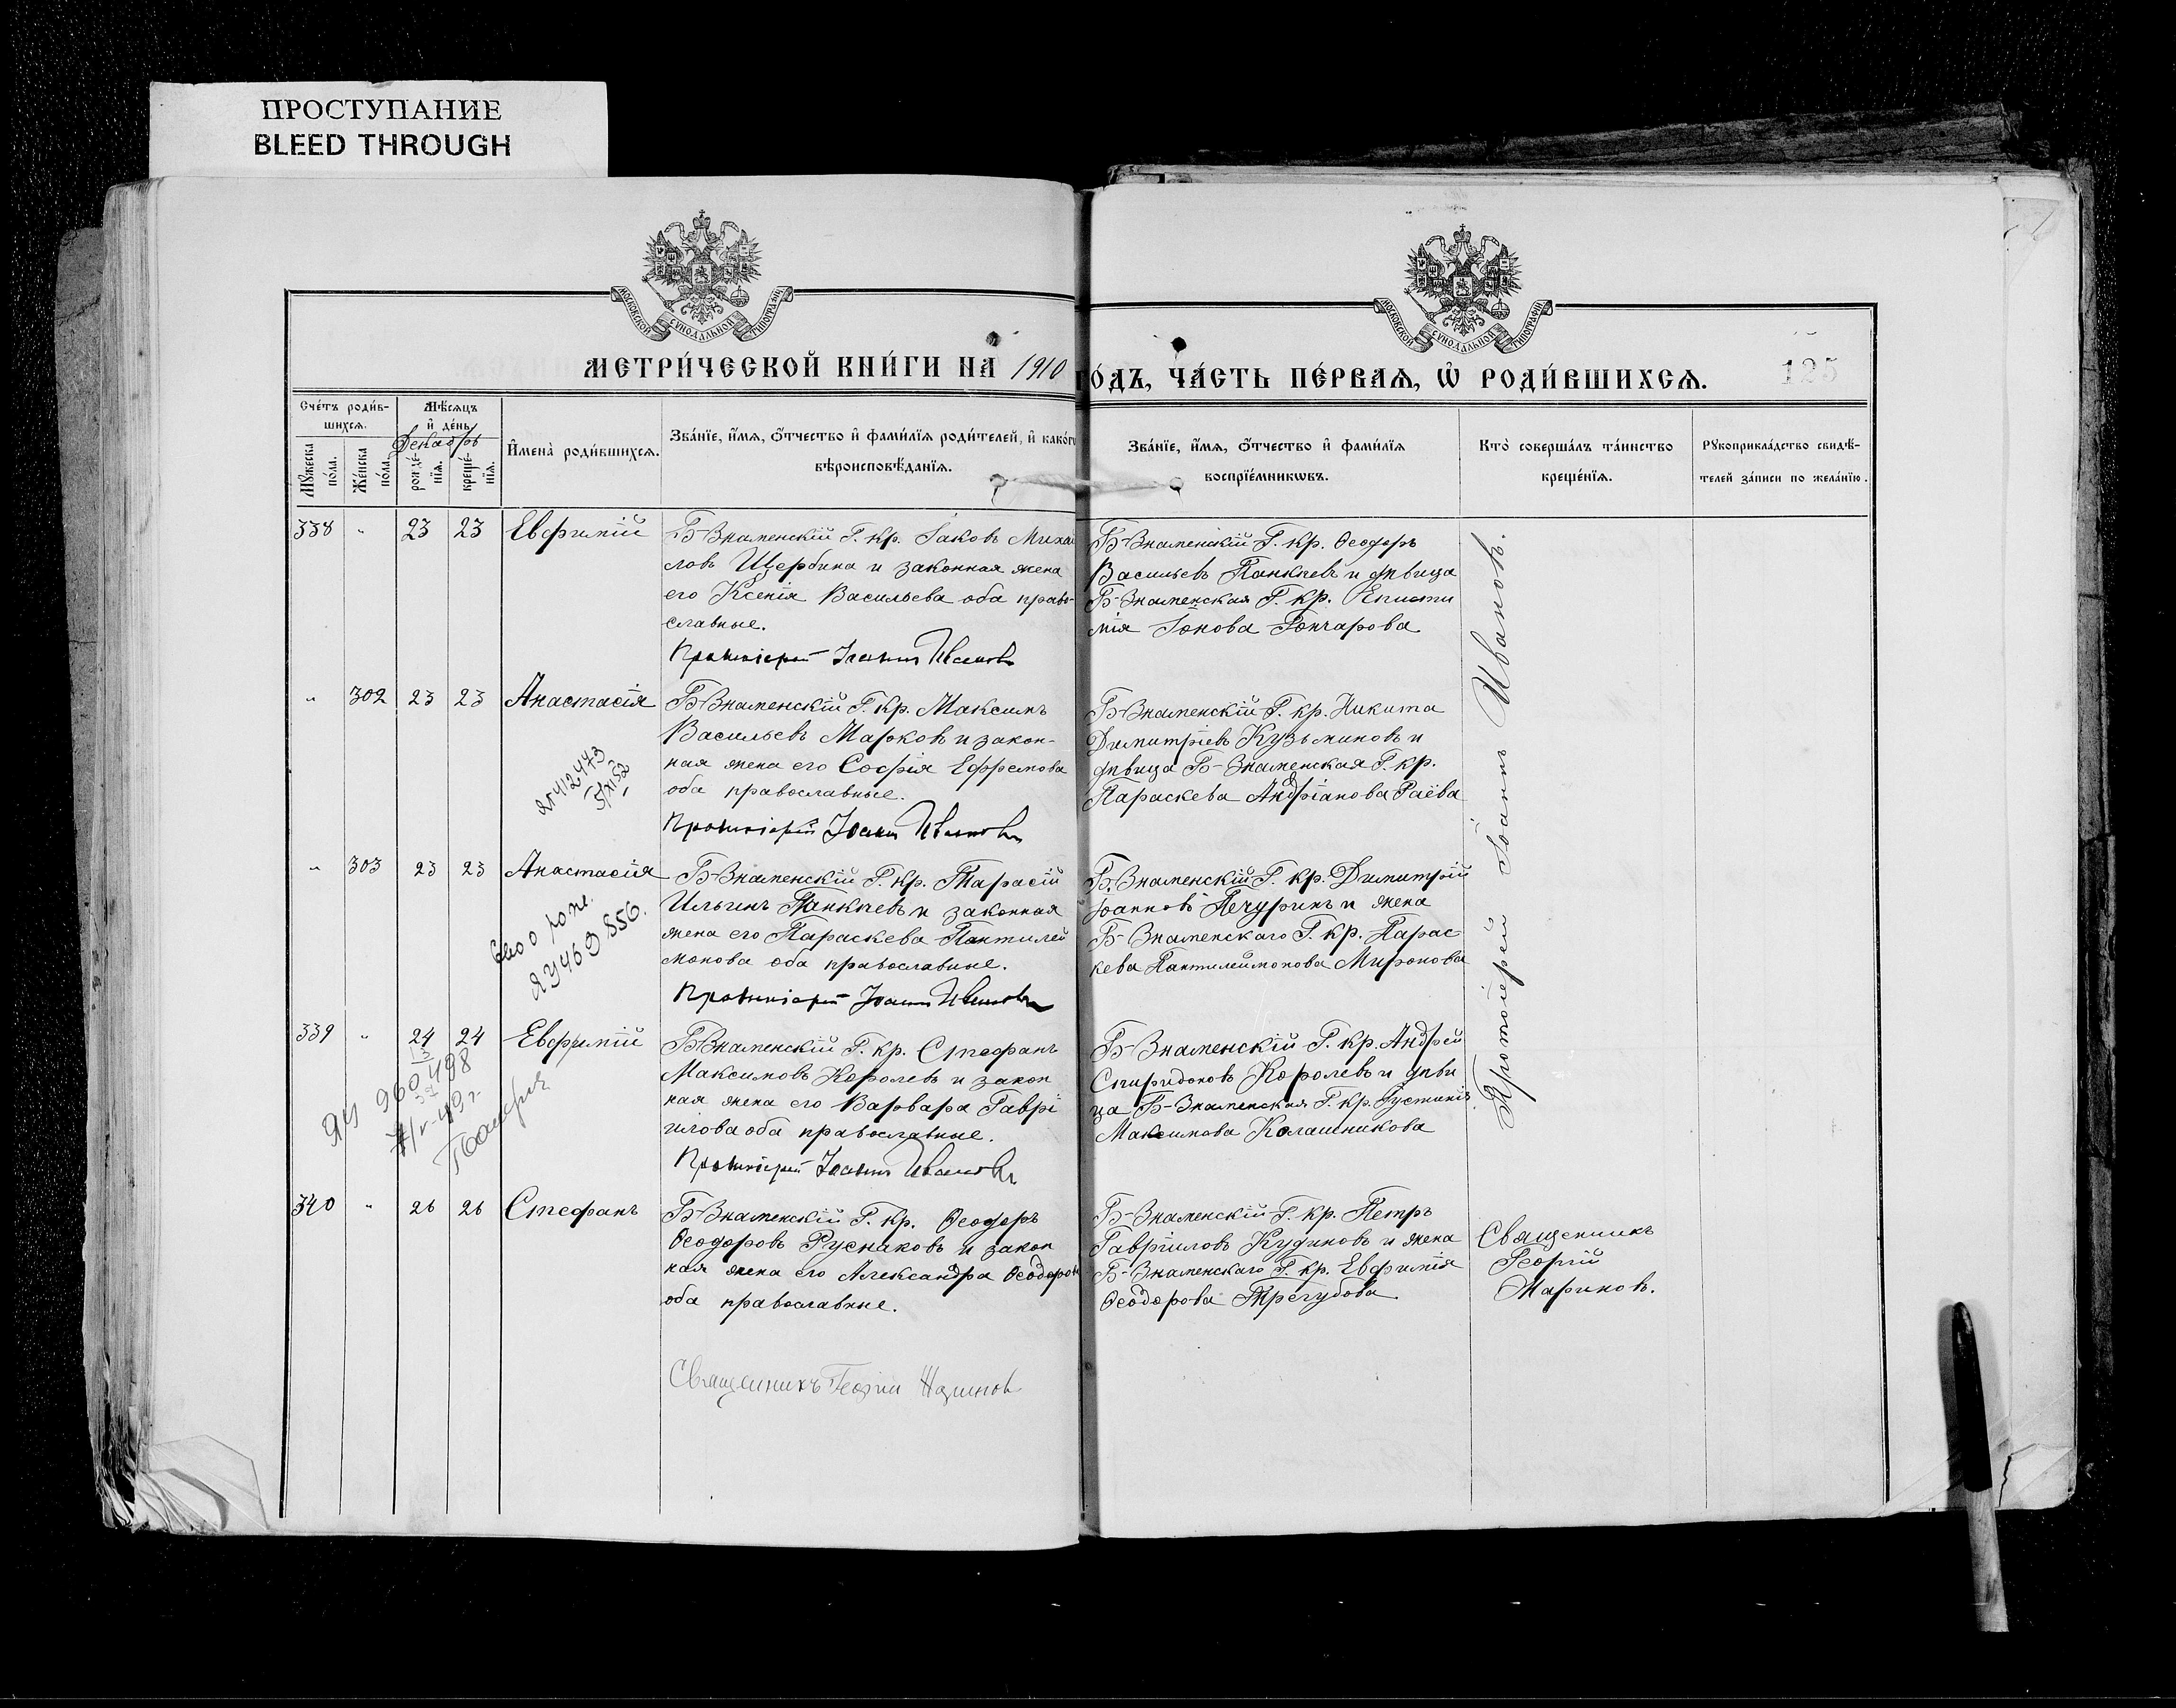 ПРОСТУПАНИЕ
BLEED THROUGH
МОСКОВСКОЙ СѴНОДАЛЬНОЙ ТИПОГРАФІИ
МОСКОВСКОЙ СѴНОДАЛЬНОЙ ТИПОГРАФІИ
МЕТРИ́ЧЕСКОЙ КНИ́ГИ НА 1910
ГО́ДЪ, ЧА́СТЬ ПЕ́РВАЯ, Ѡ РОДИ́ВШИХСЯ.
125
Сче́тъ роди́в-
шихся.
Мужеска по́ла.
Же́нска по́ла.
Мѣсяцъ
и де́нь.
Декабрь
рожде́-
нія.
креще́-
нія.
Имена̀ роди́вшихся.
Зва́ніе, и́мя, о́тчество и фами́лія роди́телей, и како́го
вѣроисповѣ́данія.
Зва́ніе, и́мя, о́тчество и фами́лія
воспріе́мниковъ.
Кто̀ соверша́лъ та́инство
креще́нія.
Рукоприкла́дство свидѣ́-
телей за́писи по жела́нію.
338 " 23 23 Евфимій
Б-Знаменскій Г. кр. Іаковъ Михаи
ловъ Щербина и законная жена
его Ксенія Васильева оба право-
славные.
Протоіерей Іоаннъ Ивановъ
Б-Знаменскій Г. кр. Ѳеодоръ
Васильевъ Панкчевъ и дѣвица
Б-Знаменская Г. кр. Еписти
мія Іонова Гончарова
" 302 23 23 Анастасія
Б-Знаменскій Г. кр. Максимъ
Васильевъ Марковъ и закон-
ная жена его Софія Ефремова
оба православные.
Протоіерей Іоаннъ Ивановъ
Б-Знаменскій Г. кр. Никита
Димитріевъ Кузьминовъ и
дѣвица Б-Знаменская Г. кр.
Параскева Андріанова Раева
" 303 23 23 Анастасія
Б-Знаменскій Г. кр. Тарасій
Ильинъ Панкчевъ и законная
жена его Параскева Пантилей
монова оба православные.
Протоіерей Іоаннъ Ивановъ
Б-Знаменскій Г. кр. Димитрій
Іоанновъ Печуринъ и жена
Б-Знаменскаго Г. кр. Парас
кева Пантилеймонова Миронова
339 " 24 24 Евфимій
Б-Знаменскій Г. кр. Стефанъ
Максимовъ Королевъ и закон
ная жена его Варвара Гаврі
илова оба православные.
Протоіерей Іоаннъ Ивановъ
Б-Знаменскій Г. кр. Андрей
Спиридоновъ Королевъ и дѣви
ца Б-Знаменская Г. кр. Іустинія
Максимова Колашникова
Протоіерей Іоаннъ Ивановъ.
340 " 26 26 Стефанъ
Б-Знаменскій Г. кр. Ѳеодоръ
Ѳеодоровъ Руснаковъ и закон
ная жена его Александра Ѳеодоров
оба православные.
Священникъ Георгій Мариновъ
Б-Знаменскій Г. кр. Петръ
Гавріиловъ Кудиновъ и жена
Б-Знаменскаго Г. кр. Евфимія
Ѳеодорова Трегубова
Священникъ
Георгій
Мариновъ.